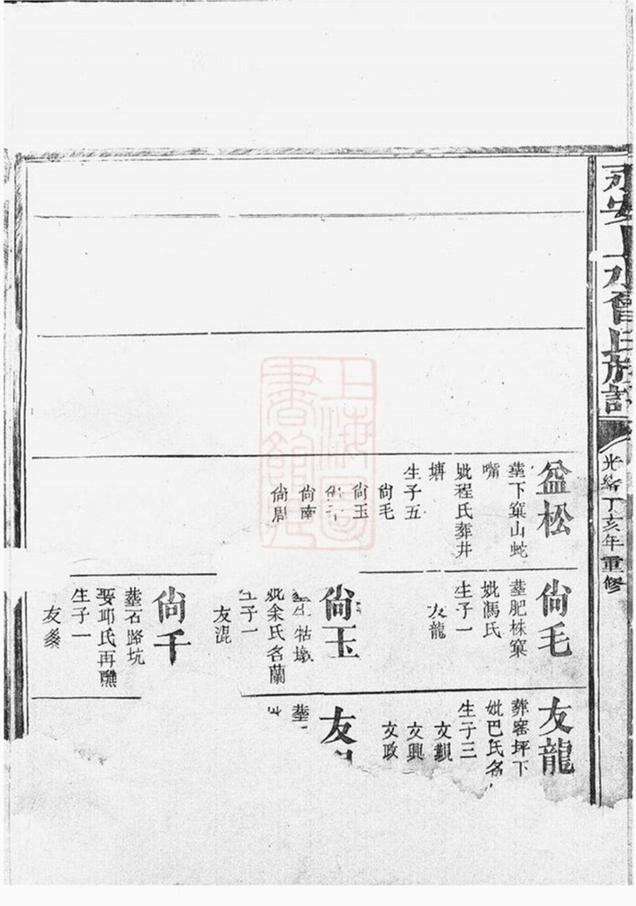 永安上水曾氏族譜
光緒丁亥年重修
益松
葬下窠山蛇
嘴
妣程氏葬井
塘
生子五
尙毛
尙玉
尙千
尙南
尙周
尙毛
葬肥株窠
妣馮氏
生子一
友龍
尙玉
牯墩
妣余氏名蘭
生子一
友混
尙千
葬石路坑
娶邱氏再醮
生子一
友龍
葬窑坪下
妣巴氏名
生子三
文觀
文興
文政
友
葬
上海圖書館藏